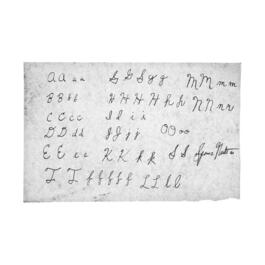 A A a a G G g g M M m m
B B b b H H H H h h N N n n
C C c c I I i i
D D d d J J j j O O o o
E E e e K K k k S S
T T f f f f f L L l l